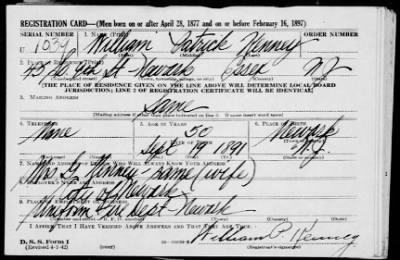 REGISTRATION CARD—(Men born on or after April 28, 1877 and on or before February 16, 1897)
SERIAL NUMBER 1. NAME (Print)
U 1034 William Patrick Kenney
2. PLACE OF RESIDENCE (Print)
St Newark Essex NJ
(THE PLACE OF RESIDENCE GIVEN ON THE LINE ABOVE WILL DETERMINE LOCAL BOARD
JURISDICTION; LINE 2 OF REGISTRATION CERTIFICATE WILL BE IDENTICAL)
3. MAILING ADDRESS
Same
4. TELEPHONE 5. AGE IN YEARS 6. PLACE OF BIRTH
None 50 Newark
Sept 19 1891 N.J.
7. NAME AND ADDRESS OF PERSON WHO WILL ALWAYS KNOW YOUR ADDRESS
Mrs Kenney - same (wife)
8. EMPLOYER'S NAME AND ADDRESS
City of Newark
9. PLACE OF EMPLOYMENT OR BUSINESS
Uniform Fire Dept Newark
I AFFIRM THAT I HAVE VERIFIED ABOVE ANSWERS AND THAT THEY ARE TRUE.
D. S. S. Form 1
(Revised 4-1-42)
William P. Kenney
(Registrant's signature)